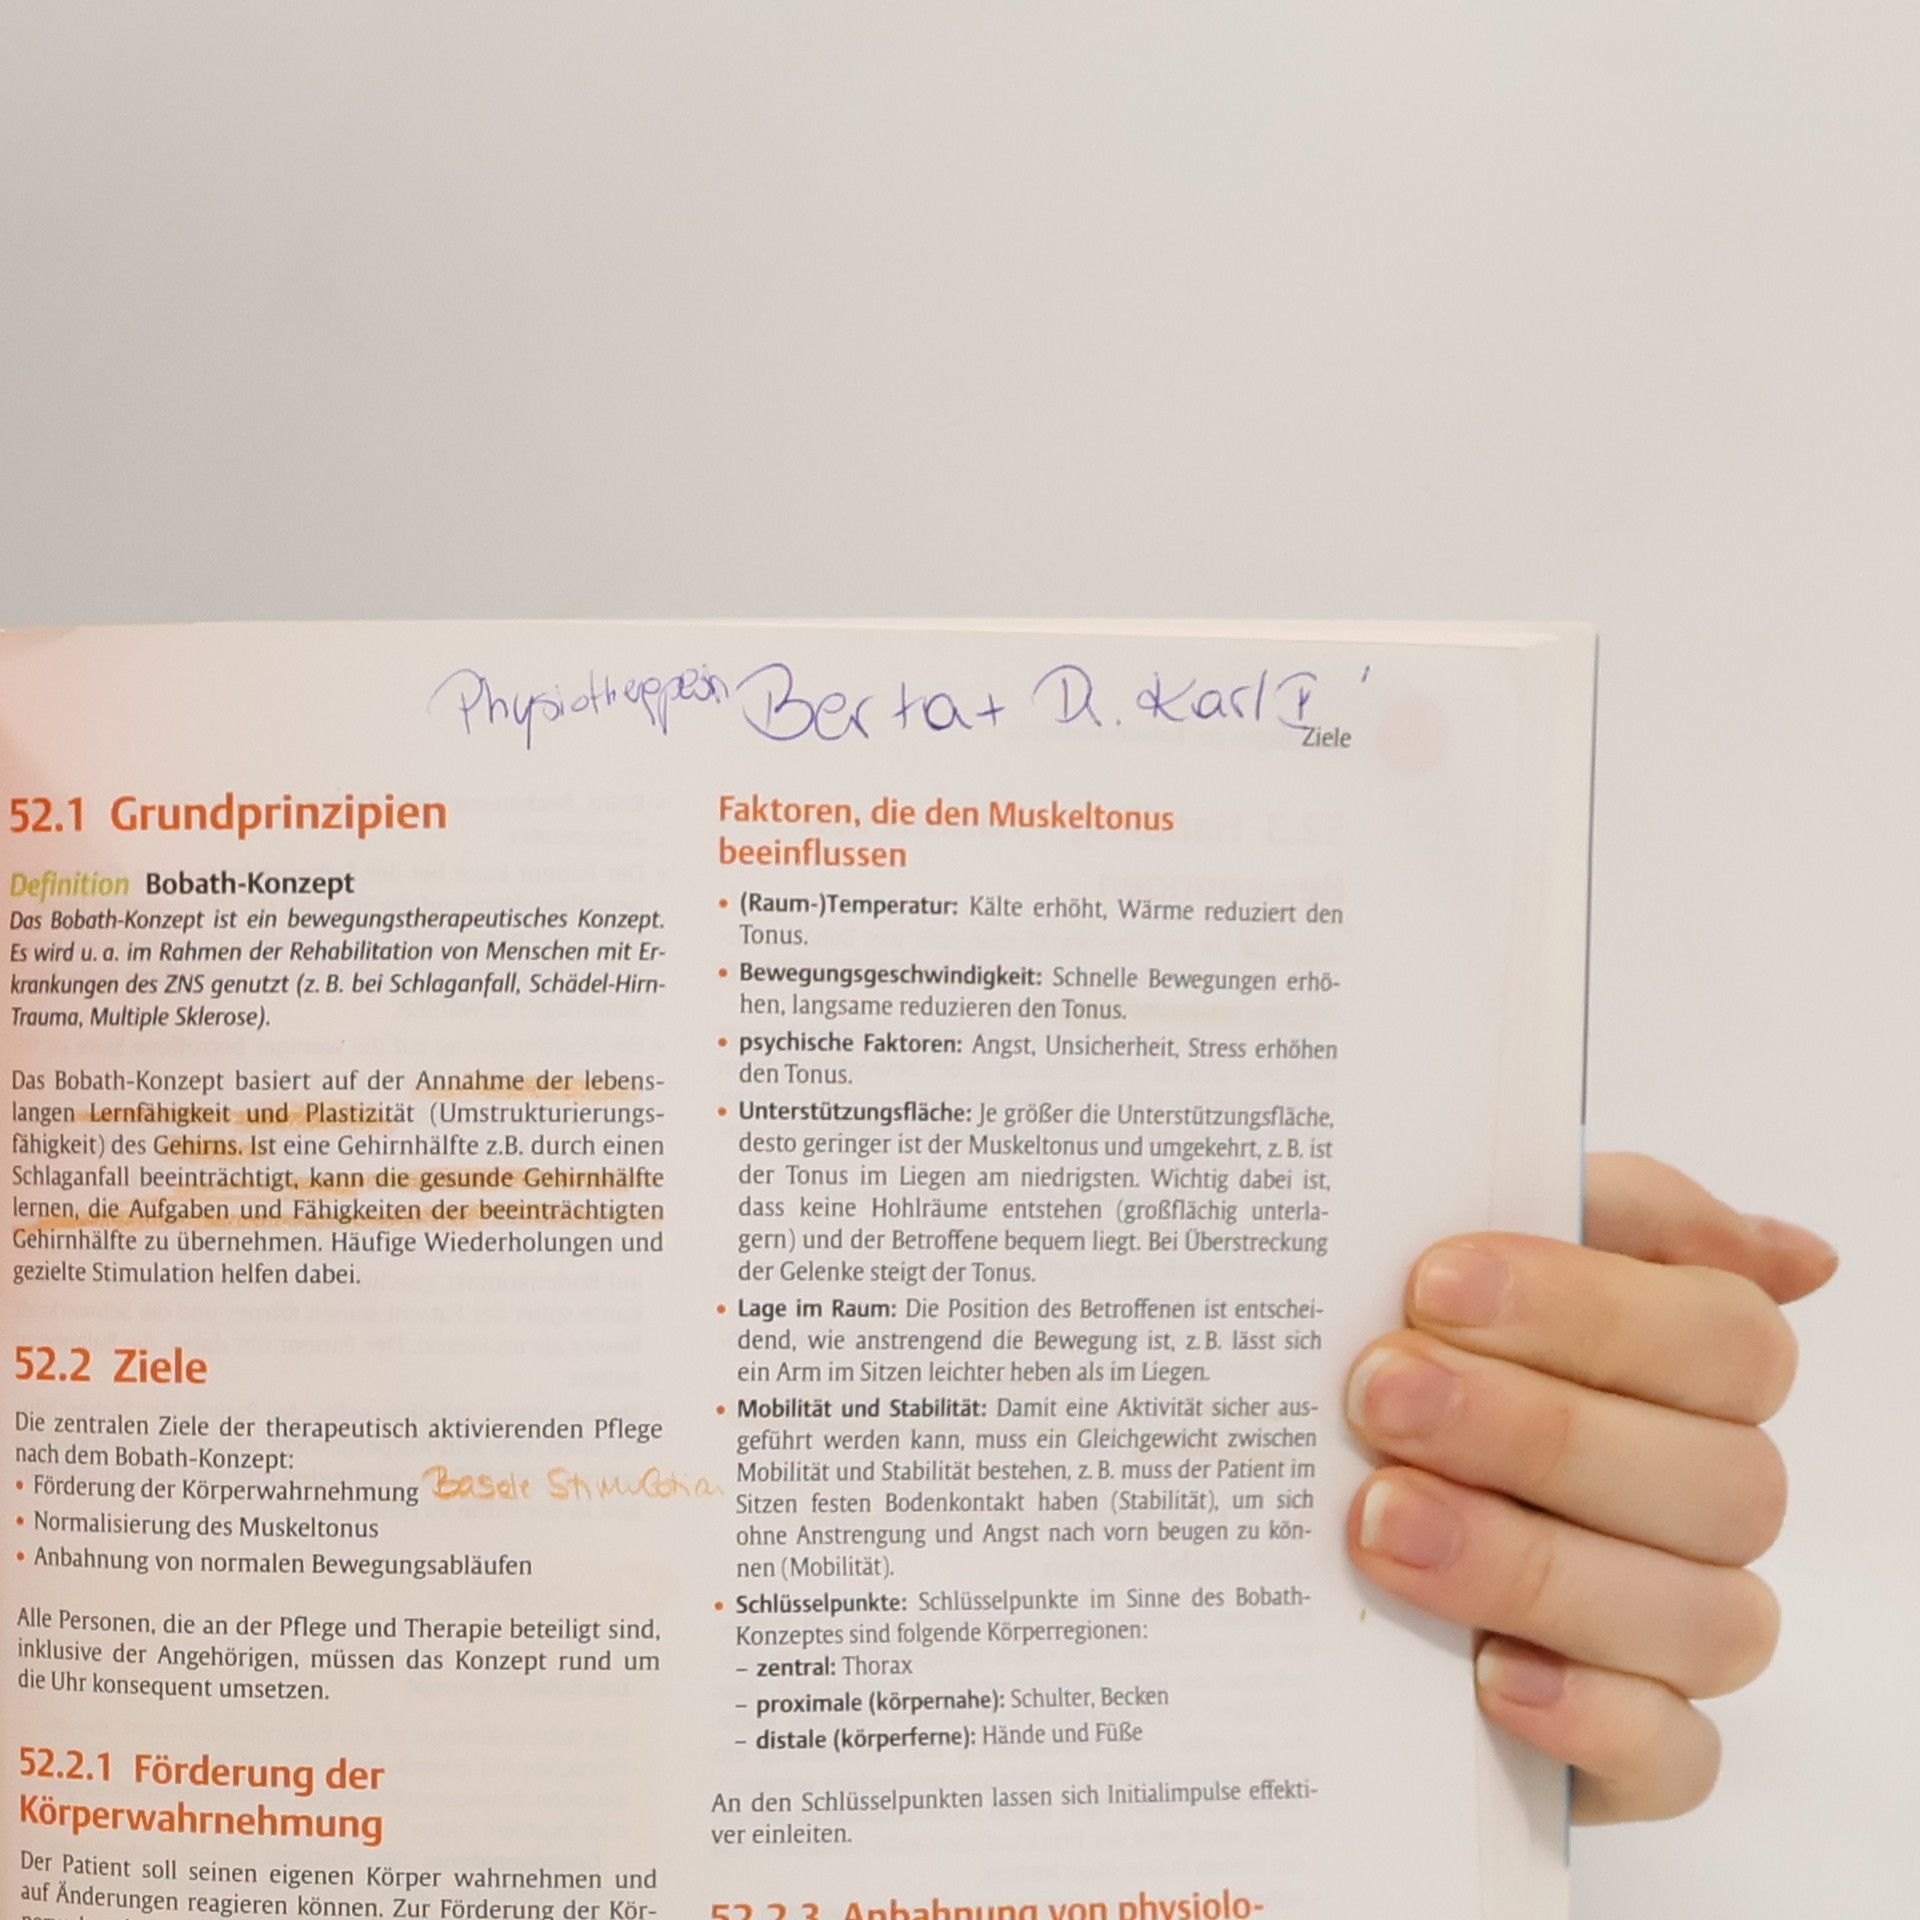 Berta + D. Karl
Ziele
52.1 Grundprinzipien
Definition Bobath-Konzept
Das Bobath-Konzept ist ein bewegungstherapeutisches Konzept.
Es wird u. a. im Rahmen der Rehabilitation von Menschen mit Er-
krankungen des ZNS genutzt (z. B. bei Schlaganfall, Schädel-Hirn-
Trauma, Multiple Sklerose).
Das Bobath-Konzept basiert auf der Annahme der lebens-
langen Lernfähigkeit und Plastizität (Umstrukturierungs-
fähigkeit) des Gehirns. Ist eine Gehirnhälfte z.B. durch einen
Schlaganfall beeinträchtigt, kann die gesunde Gehirnhälfte
lernen, die Aufgaben und Fähigkeiten der beeinträchtigten
Gehirnhälfte zu übernehmen. Häufige Wiederholungen und
gezielte Stimulation helfen dabei.
52.2 Ziele
Die zentralen Ziele der therapeutisch aktivierenden Pflege
nach dem Bobath-Konzept:
• Förderung der Körperwahrnehmung Basale Stimulation
• Normalisierung des Muskeltonus
• Anbahnung von normalen Bewegungsabläufen
Alle Personen, die an der Pflege und Therapie beteiligt sind,
inklusive der Angehörigen, müssen das Konzept rund um
die Uhr konsequent umsetzen.
52.2.1 Förderung der
Körperwahrnehmung
Der Patient soll seinen eigenen Körper wahrnehmen und
auf Änderungen reagieren können. Zur Förderung der Kör-
Faktoren, die den Muskeltonus
beeinflussen
• (Raum-)Temperatur: Kälte erhöht, Wärme reduziert den
Tonus.
• Bewegungsgeschwindigkeit: Schnelle Bewegungen erhö-
hen, langsame reduzieren den Tonus.
• psychische Faktoren: Angst, Unsicherheit, Stress erhöhen
den Tonus.
• Unterstützungsfläche: Je größer die Unterstützungsfläche,
desto geringer ist der Muskeltonus und umgekehrt, z. B. ist
der Tonus im Liegen am niedrigsten. Wichtig dabei ist,
dass keine Hohlräume entstehen (großflächig unterla-
gern) und der Betroffene bequem liegt. Bei Überstreckung
der Gelenke steigt der Tonus.
• Lage im Raum: Die Position des Betroffenen ist entschei-
dend, wie anstrengend die Bewegung ist, z. B. lässt sich
ein Arm im Sitzen leichter heben als im Liegen.
• Mobilität und Stabilität: Damit eine Aktivität sicher aus-
geführt werden kann, muss ein Gleichgewicht zwischen
Mobilität und Stabilität bestehen, z. B. muss der Patient im
Sitzen festen Bodenkontakt haben (Stabilität), um sich
ohne Anstrengung und Angst nach vorn beugen zu kön-
nen (Mobilität).
• Schlüsselpunkte: Schlüsselpunkte im Sinne des Bobath-
Konzeptes sind folgende Körperregionen:
– zentral: Thorax
– proximale (körpernahe): Schulter, Becken
– distale (körperferne): Hände und Füße
An den Schlüsselpunkten lassen sich Initialimpulse effekti-
ver einleiten.
52.2.3 Anbahnung von physiolo-